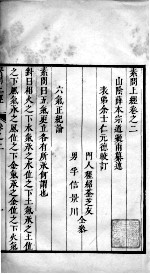 素問上經卷之二
山陰薛本宗道號南纂述
表弟余士仁元德較訂
門人程紹荃芝友
男孚信景川
仝參
六氣正紀論
素問曰五氣更立各有所承何謂也
針曰相火之下水氣承之水位之下土氣承之土位
之下風氣承之風位之下金氣承之金位之下火氣